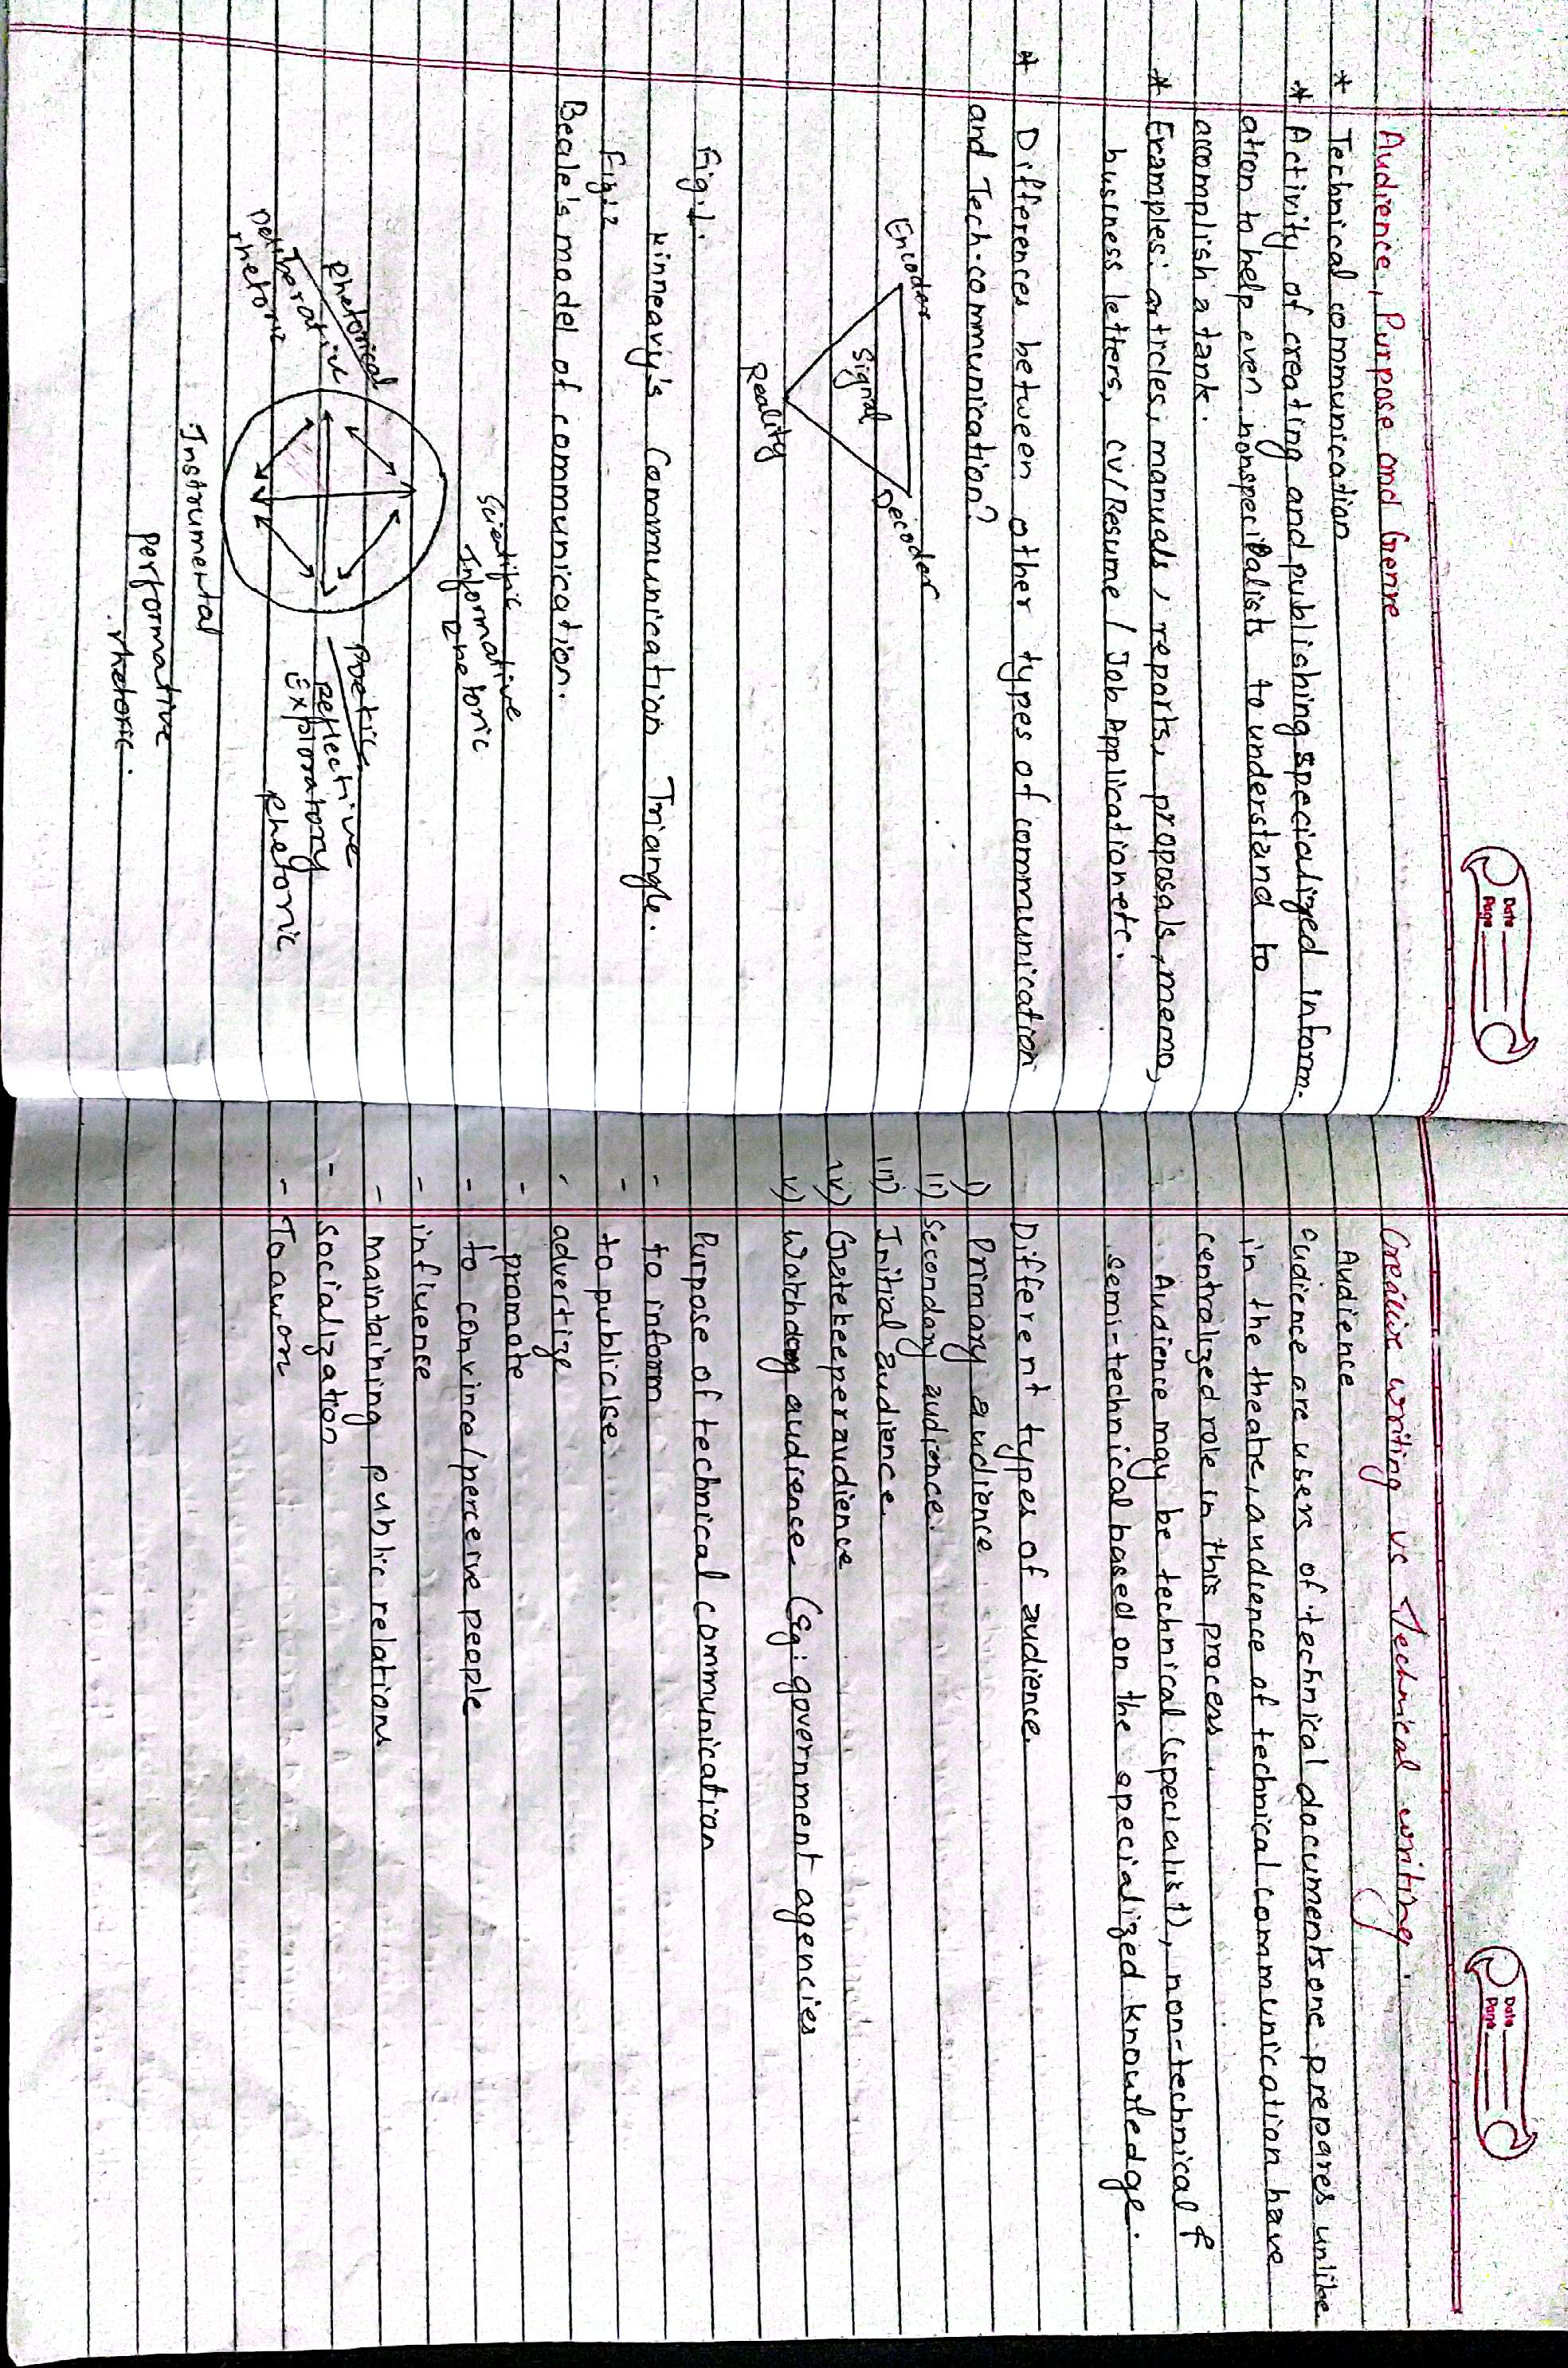 Date
Page
Audience, Purpose and Genre
* Technical communication
* Activity of creating and publishing specialized inform-
ation to help even nonspecialists to understand to
accomplish a tank.
* Examples: articles, manuals, reports, proposals, memo,
business letters, cv/Resume / Job Application etc.
* Differences between other types of communication
and Tech. communication?
Encoder
Decoder
Signal
Reality
Fig: 1.
Kinneavy's Communication Triangle.
Fig: 2
Beale's model of communication.
Scientific
Informative
Rhetoric
Rhetorical
Deliberative
rhetoric
Poetic
Reflective
Exploratory
Rhetoric
Instrumental
Performative
rhetoric.
Date
Page
Creative writing vs Technical writing.
Audience
Audience are users of technical documents one prepares unlike
in the theatre, audience of technical communication have
centralized role in this process.
Audience may be technical (specialist), non-technical &
semi-technical based on the specialized knowledge.
Different types of audience.
i) Primary audience
ii) Secondary audience.
iii) Initial audience.
iv) Gatekeeper audience
v) Watchdog audience. (Eg: government agencies
Purpose of technical communication
- to inform
- to publicise
- advertize
- promote
- to convince/perceive people
- influence
- maintaining public relations
- socialization
- To